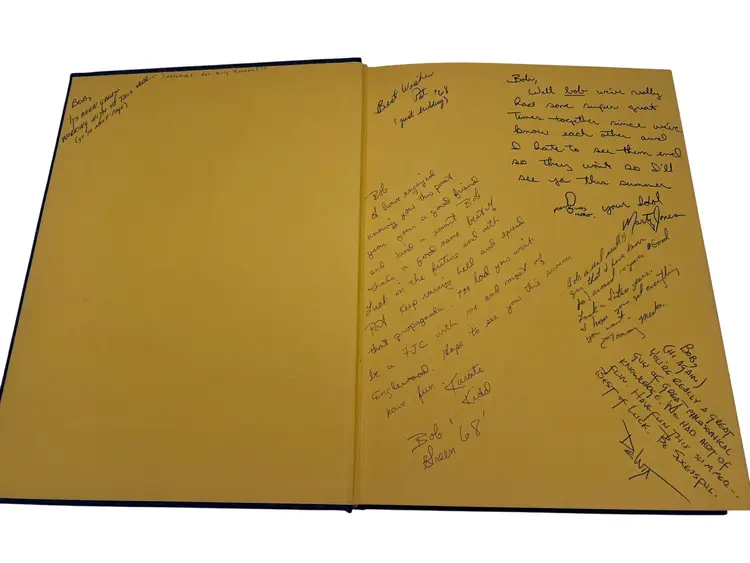 BOB,
IT'S BEEN GREAT
WORKING WITH YA THIS YEAR...
(GO TO NEXT PAGE)
Best Wishes
Pat '68
(just kidding)
Bob,
Well bob we've really
had some super great
times together since we've
know each other and
I hate to see them end
so they won't so I'll
see ya this summer
your
Marty Jones
Bob
I have enjoyed
knowing you this past
year. your a good friend
and kind a smart Bob
that's a good name best of
Luck in the future and with
Pat Keep raising hell and spread
that propaganda. Too bad you won't
be a FJC with me and most of
Englewood. Hope to see you this summer
have fun. Karate
Kidd
Bob
Green '68'
Bob a real
guy that I have known
for around 10 years Good
Luck in future years.
I hope you get everything
you want.
Tommy
BOB,
(HI AGAIN)
YOU'RE REALLY A GREAT
GUY OF GREAT PHILOSOPHICAL
KNOWLEDGE. WE HAD ALOT OF
FUN. HAVE FUN THIS SUMMER...
BEST OF LUCK. BE SUXESSFUL.
DeWit